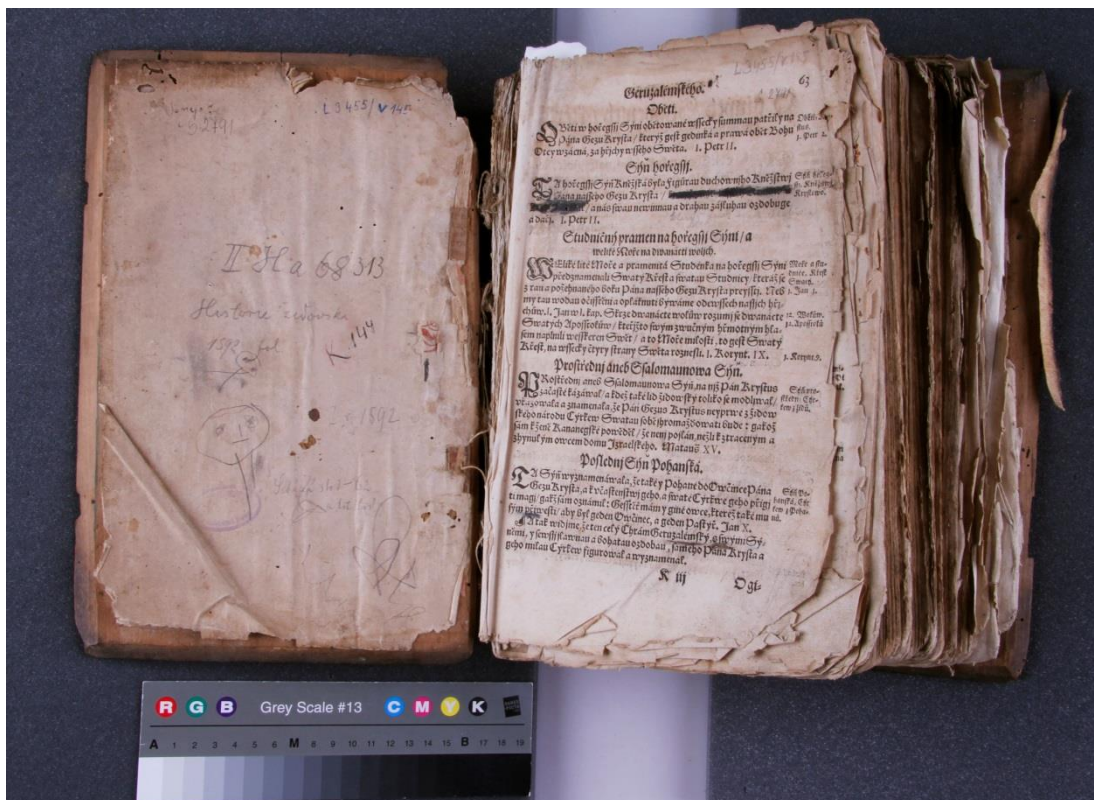 L 3455/V 145
II Ha 68313
Historie židovská
1592
K 144
1592
L 3455/V 145
63
Geruzalémského.
Oběti.
OBěti w hořegssij Sýni obětowané wssecky summau patřily na
Pána Gezu Krysta / kterýž gest gediná a prawá obět Bohu
Otcy wzácná, za hřjchy wsseho Swěta. 1. Petr II.
1. Petr 2.
Sýň hořegssij.
TA hořegssij Sýň Kněžská byla figúrau duchownjho Kněžstwj
Pána nasseho Gezu Krysta /
/ a nás swau newinnau a drahau zásluhau ozdobuge
a dačj. 1. Petr II.
Studničný pramen na hořegssij Sýni / a
weliké Moře na dwanácti wolých.
WEliké lité Moře a pramenitá Studénka na hořegssij Sýni
předznamenali Swatý Křest a swatau Studnicy / kteráž se
z raný a požehnaného boku Pána nasseho Gezu Krysta preysstj. Neb
my tau wodau očisstěni a opláknuti býwáme ode wssech nassich hřj-
chůw. 1. Jan w 1. kap. Skrze dwanácte wolůw rozumj se dwanácte
Swatých Aposstolůw / kteřjžto swým zwučným hřmotným hla-
sem naplnili wesskeren Swět / a to Moře milosti, to gest Swatý
Křest, na wssecky čtyry strany Swěta roznesli. 1. Korynt. IX.
Moře a stu-
dnice, Křest
Swatý.
1. Jan 1.
12. Wolůw.
12. Aposstolů
1. Korynt. 9.
Prostřednj aneb Ssalomaunowa Sýň.
PRostřednj aneb Ssalomaunowa Sýň, na njž Pán Krystus
začasté kázáwal / a kdež také lid židowský toliko se modljwal /
vkazowala a znamenala, že Pán Gezus Krystus neyprwé z židow-
ského národu Cýrkew Swatau sobě shromažďowati bude: gakož
sám k ženě Kananegské powěděl / že nenj poslán, nežli k ztraceným a
zhynulým owcem domu Izraelského. Matauš XV.
Poslednj Sýň Pohanská.
TA Sýň wyznamenáwala, že také y Pohané do Owčince Pána
Gezu Krysta, a k včastenstwj geho, a swaté Cýrkwe geho přigj-
ti magj / gakž sám oznámil: Gesstě mám y giné owce, kteréž také mu-
sým přiwésti / aby byl geden Owčinec, a geden Pastýř. Jan X.
A tak widjme, že ten celý Chrám Geruzalémský, s swými Sý-
němi, y se wssj slawnau a bohatau ozdobau, samého Pána Krysta a
geho milau Cýrkew figurowal a wyznamenal.
K iij
Ogi-
R G B Grey Scale #13 C M Y K
A 1 2 3 4 5 6 M 8 9 10 11 12 13 14 15 B 17 18 19